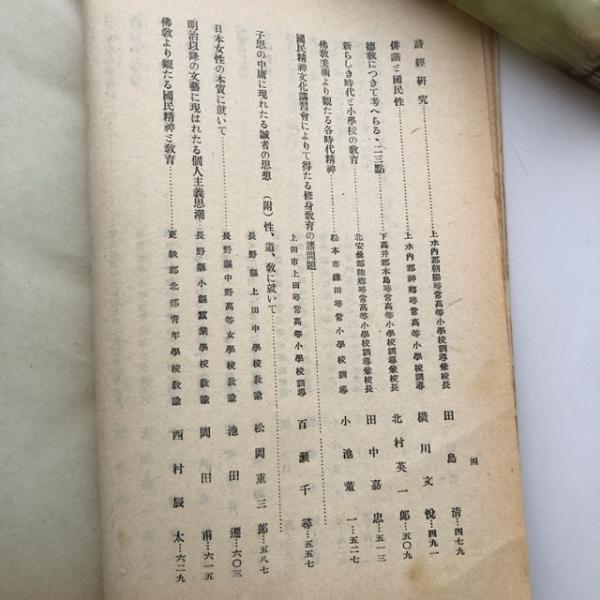 四
詩經研究……上水内郡朝陽尋常高等小學校訓導兼校長 田島清…四七九
俳諧と國民性……上水内郡神郷尋常高等小學校訓導 橫川文悅…四九一
德敎につきて考へらる・二三點……下高井郡木島尋常高等小學校訓導兼校長 北村英一郞…五〇九
新らしき時代と小學校の敎育……北安曇郡陸鄕尋常高等小學校訓導兼校長 田中嘉忠…五一三
佛敎美術より觀たる各時代精神……松本市鎌田尋常小學校訓導 小池董一…五二七
國民精神文化講習會によりて得たる修身敎育の諸問題……上田市上田尋常高等小學校訓導 百瀨千尋…五五七
子思の中庸に現れたる誠者の思想 (附)性、道、敎に就いて……長野縣上田中學校敎諭 松岡重三郞…五八七
日本女性の本質に就いて……長野縣中野高等女學校敎諭 池田遷…六〇三
明治以降の文藝に現はれたる個人主義思潮……長野縣小縣蠶業學校敎諭 岡田甫…六一五
佛敎より觀たる國民精神と敎育……更級郡北部靑年學校敎諭 西村辰太…六二九